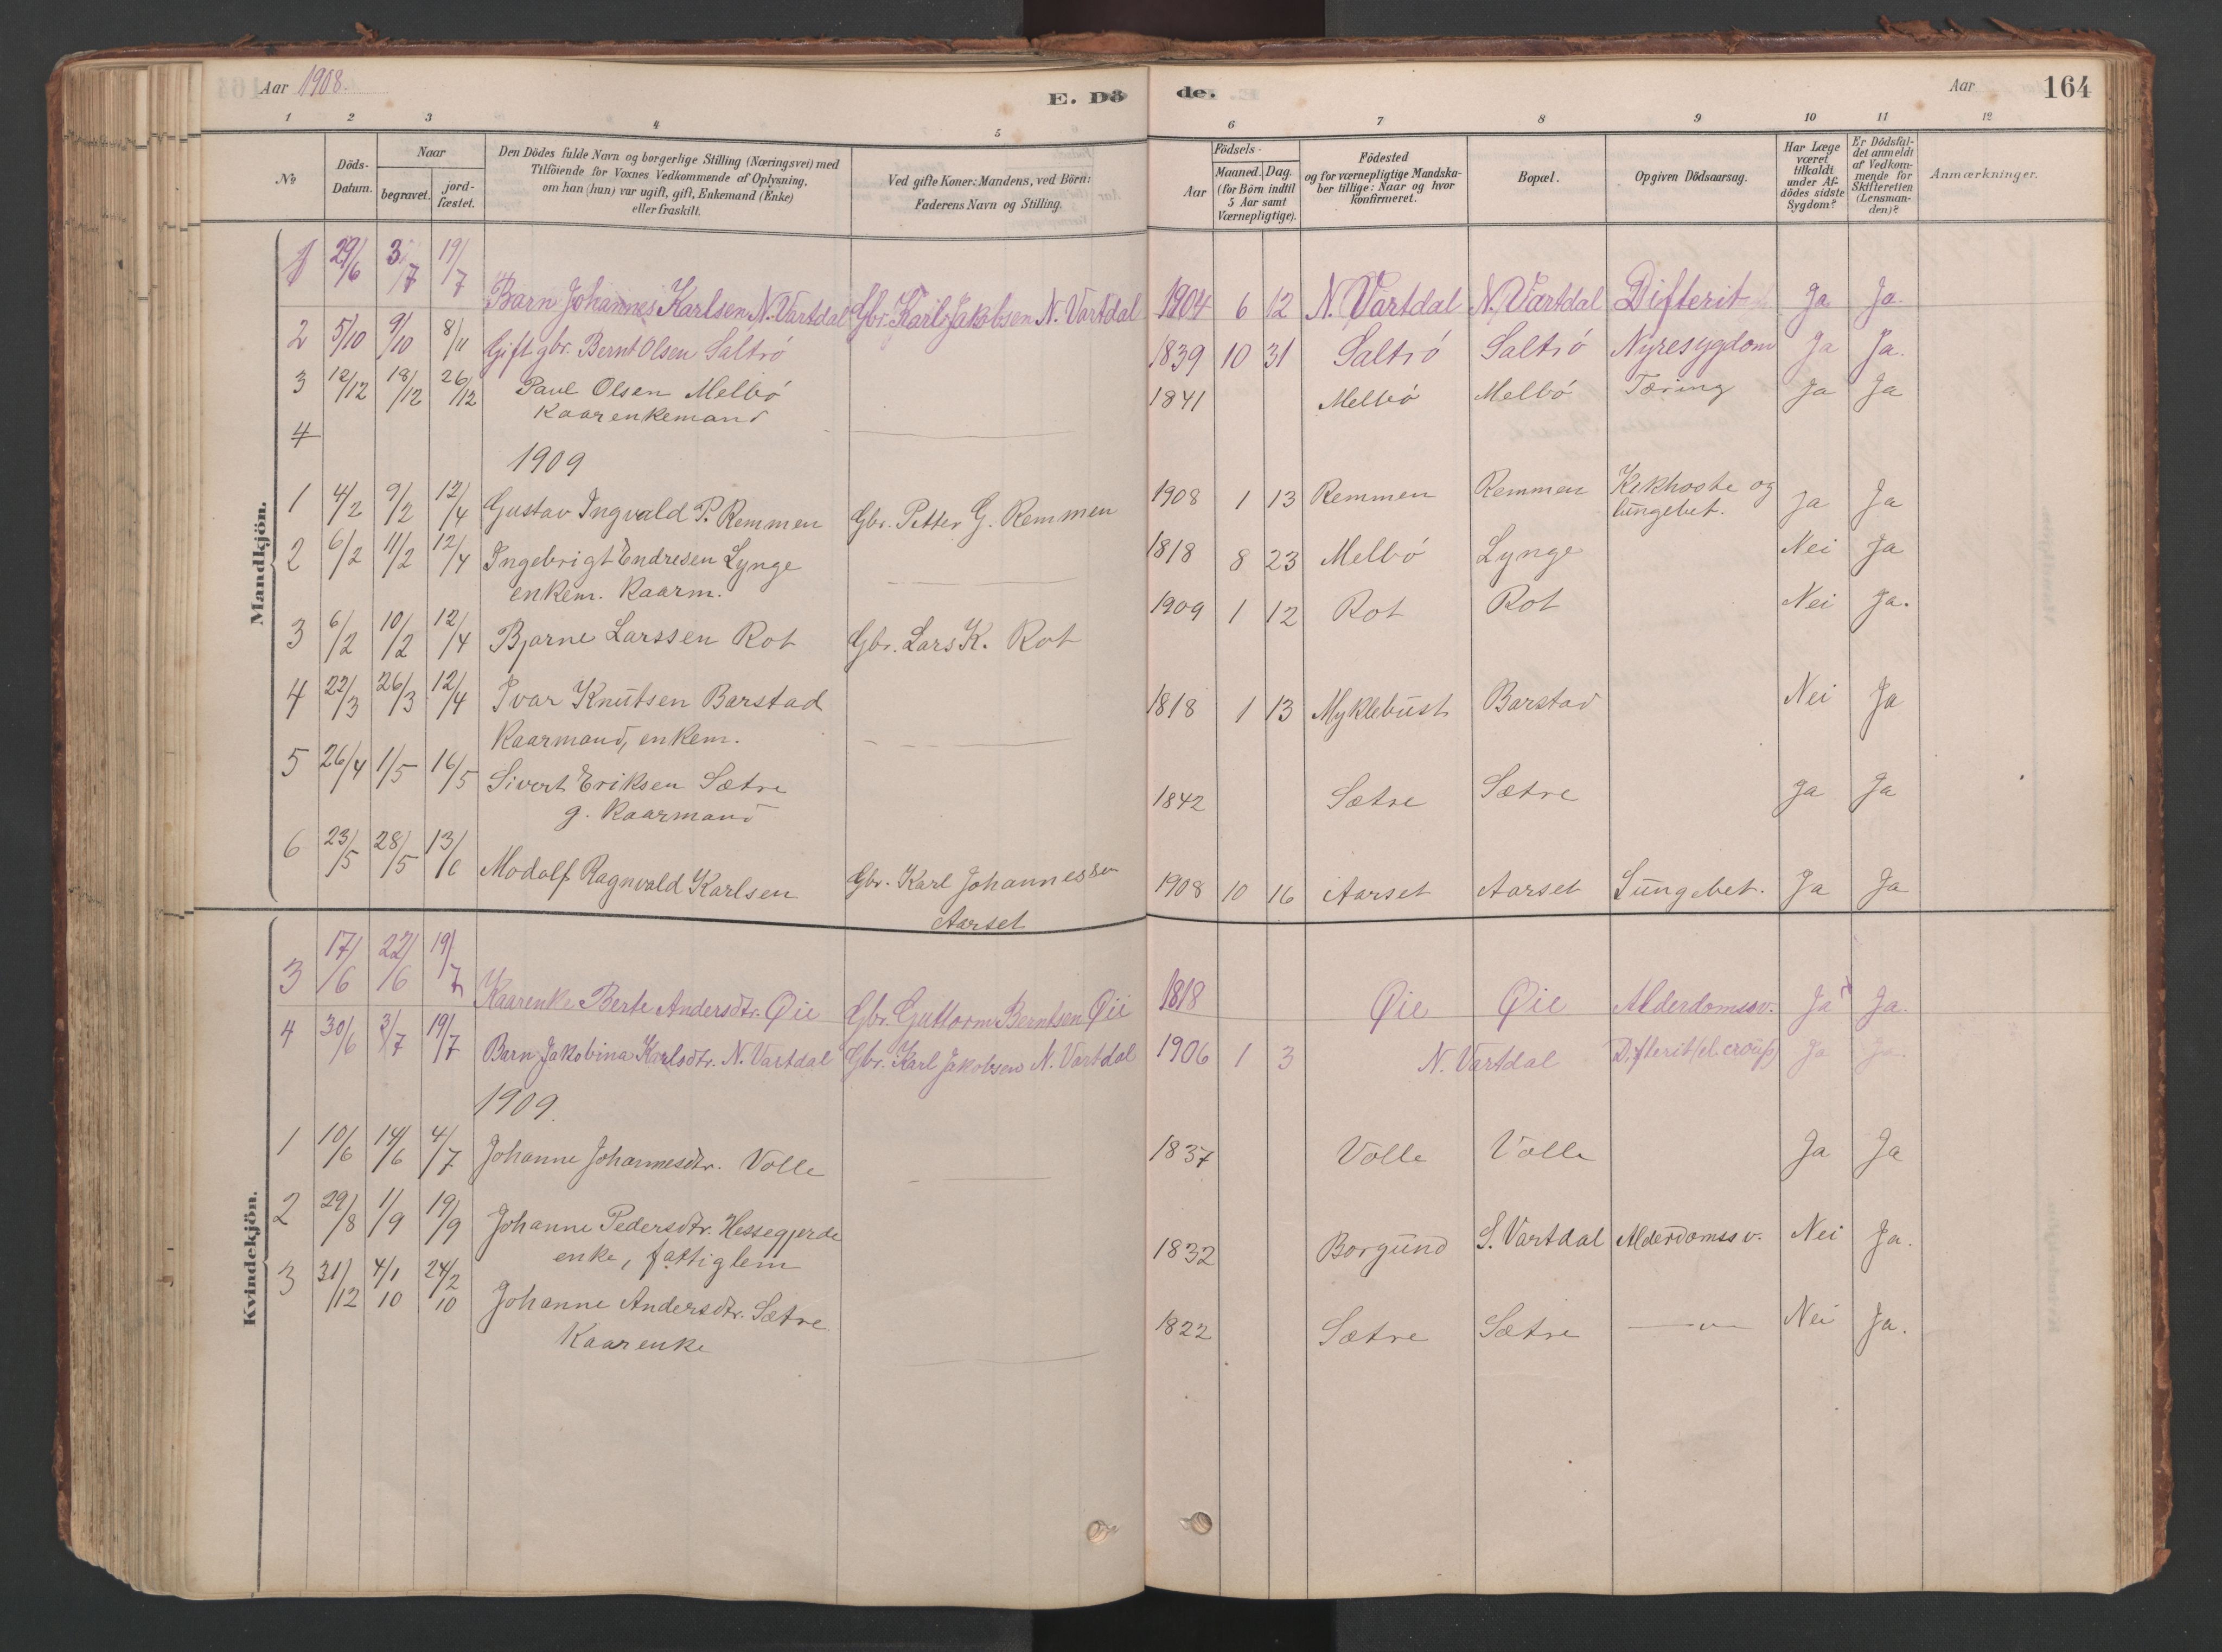 Aar 1908. E. Dö de. Aar 164
1 2 3 4 5 6 7 8 9 10 11 12
No
Döds-Datum.
Naar
begravet. jord-fæstet.
Den Dödes fulde Navn og borgerlige Stilling (Næringsvei) med
Tilföiende for Voxnes Vedkommende af Oplysning,
om han (hun) var ugift, gift, Enkemand (Enke)
eller fraskilt.
Ved gifte Koner: Mandens, ved Börn:
Faderens Navn og Stilling.
Födsels-
Aar Maaned. Dag.
(for Börn indtil
5 Aar samt
Værnepligtige).
Födested
og for værnepligtige Mandska-
ber tillige: Naar og hvor
konfirmeret.
Bopæl.
Opgiven Dödsaarsag.
Har Læge
været
tilkaldt
under Af-
dödes sidste
Sygdom?
Er Dödsfal-
det anmeldt
af Vedkom-
mende for
Skifteretten
(Lensman-
den)?
Anmærkninger.
Mandkjön.
1 29/6 3/7 19/7 Barn Johannes Karlsen N. Vartdal Gbr. Karl Jakobsen N. Vartdal 1904 6 12 N. Vartdal N. Vartdal Difterit Ja Ja.
2 5/10 9/10 8/11 Gift gbr. Bernt Olsen Saltrö 1839 10 31 Saltrö Saltrö Nyresygdom Ja Ja.
3 12/12 18/12 26/12 Paul Olsen Melbö 1841 Melbö Melbö Tæring Ja Ja
Kaarenkemand
4
1909
1 4/2 9/2 12/4 Gustav Ingvald P. Remmen Gbr. Petter G. Remmen 1908 1 13 Remmen Remmen Kikhoste og Ja Ja
lungebet.
2 6/2 11/2 12/4 Ingebrigt Endresen Lynge 1818 8 23 Melbö Lynge Nei Ja
enkem. Kaarm.
3 6/2 10/2 12/4 Bjarne Larssen Rot Gbr. Lars K. Rot 1909 1 12 Rot Rot Nei Ja.
4 22/3 26/3 12/4 Ivar Knutsen Barstad 1818 1 13 Myklebust Barstad Nei Ja
Kaarmand, enkem.
5 26/4 1/5 16/5 Sivert Eriksen Sætre 1842 Sætre Sætre Ja Ja
g. Kaarmand
6 23/5 28/5 13/6 Modolf Ragnvald Karlsen Gbr. Karl Johannessen 1908 10 16 Aarset Aarset Lungebet. Ja Ja
Aarset
Kvindekjön.
3 17/6 22/6 19/7 Kaarenke Berte Andersdtr. Øie Gbr. Guttorm Berntsen Øie 1818 Øie Øie Alderdomssv. Ja Ja.
4 30/6 3/7 19/7 Barn Jakobina Karlsdtr. N. Vartdal Gbr. Karl Jakobsen N. Vartdal 1906 1 3 N. Vartdal Difterit (el. croup) Ja Ja.
1909.
1 10/6 14/6 4/7 Johanne Johannesdtr. Volle 1837 Volle Volle Ja Ja
2 29/8 1/9 19/9 Johanne Pedersdtr. Hessegjerde 1832 Borgund S. Vartdal Alderdomssv. Nei Ja.
enke, fattiglem
3 31/12 4/1 10 24/2 10 Johanne Andersdtr. Sætre 1822 Sætre Sætre —"— Nei Ja.
Kaarenke